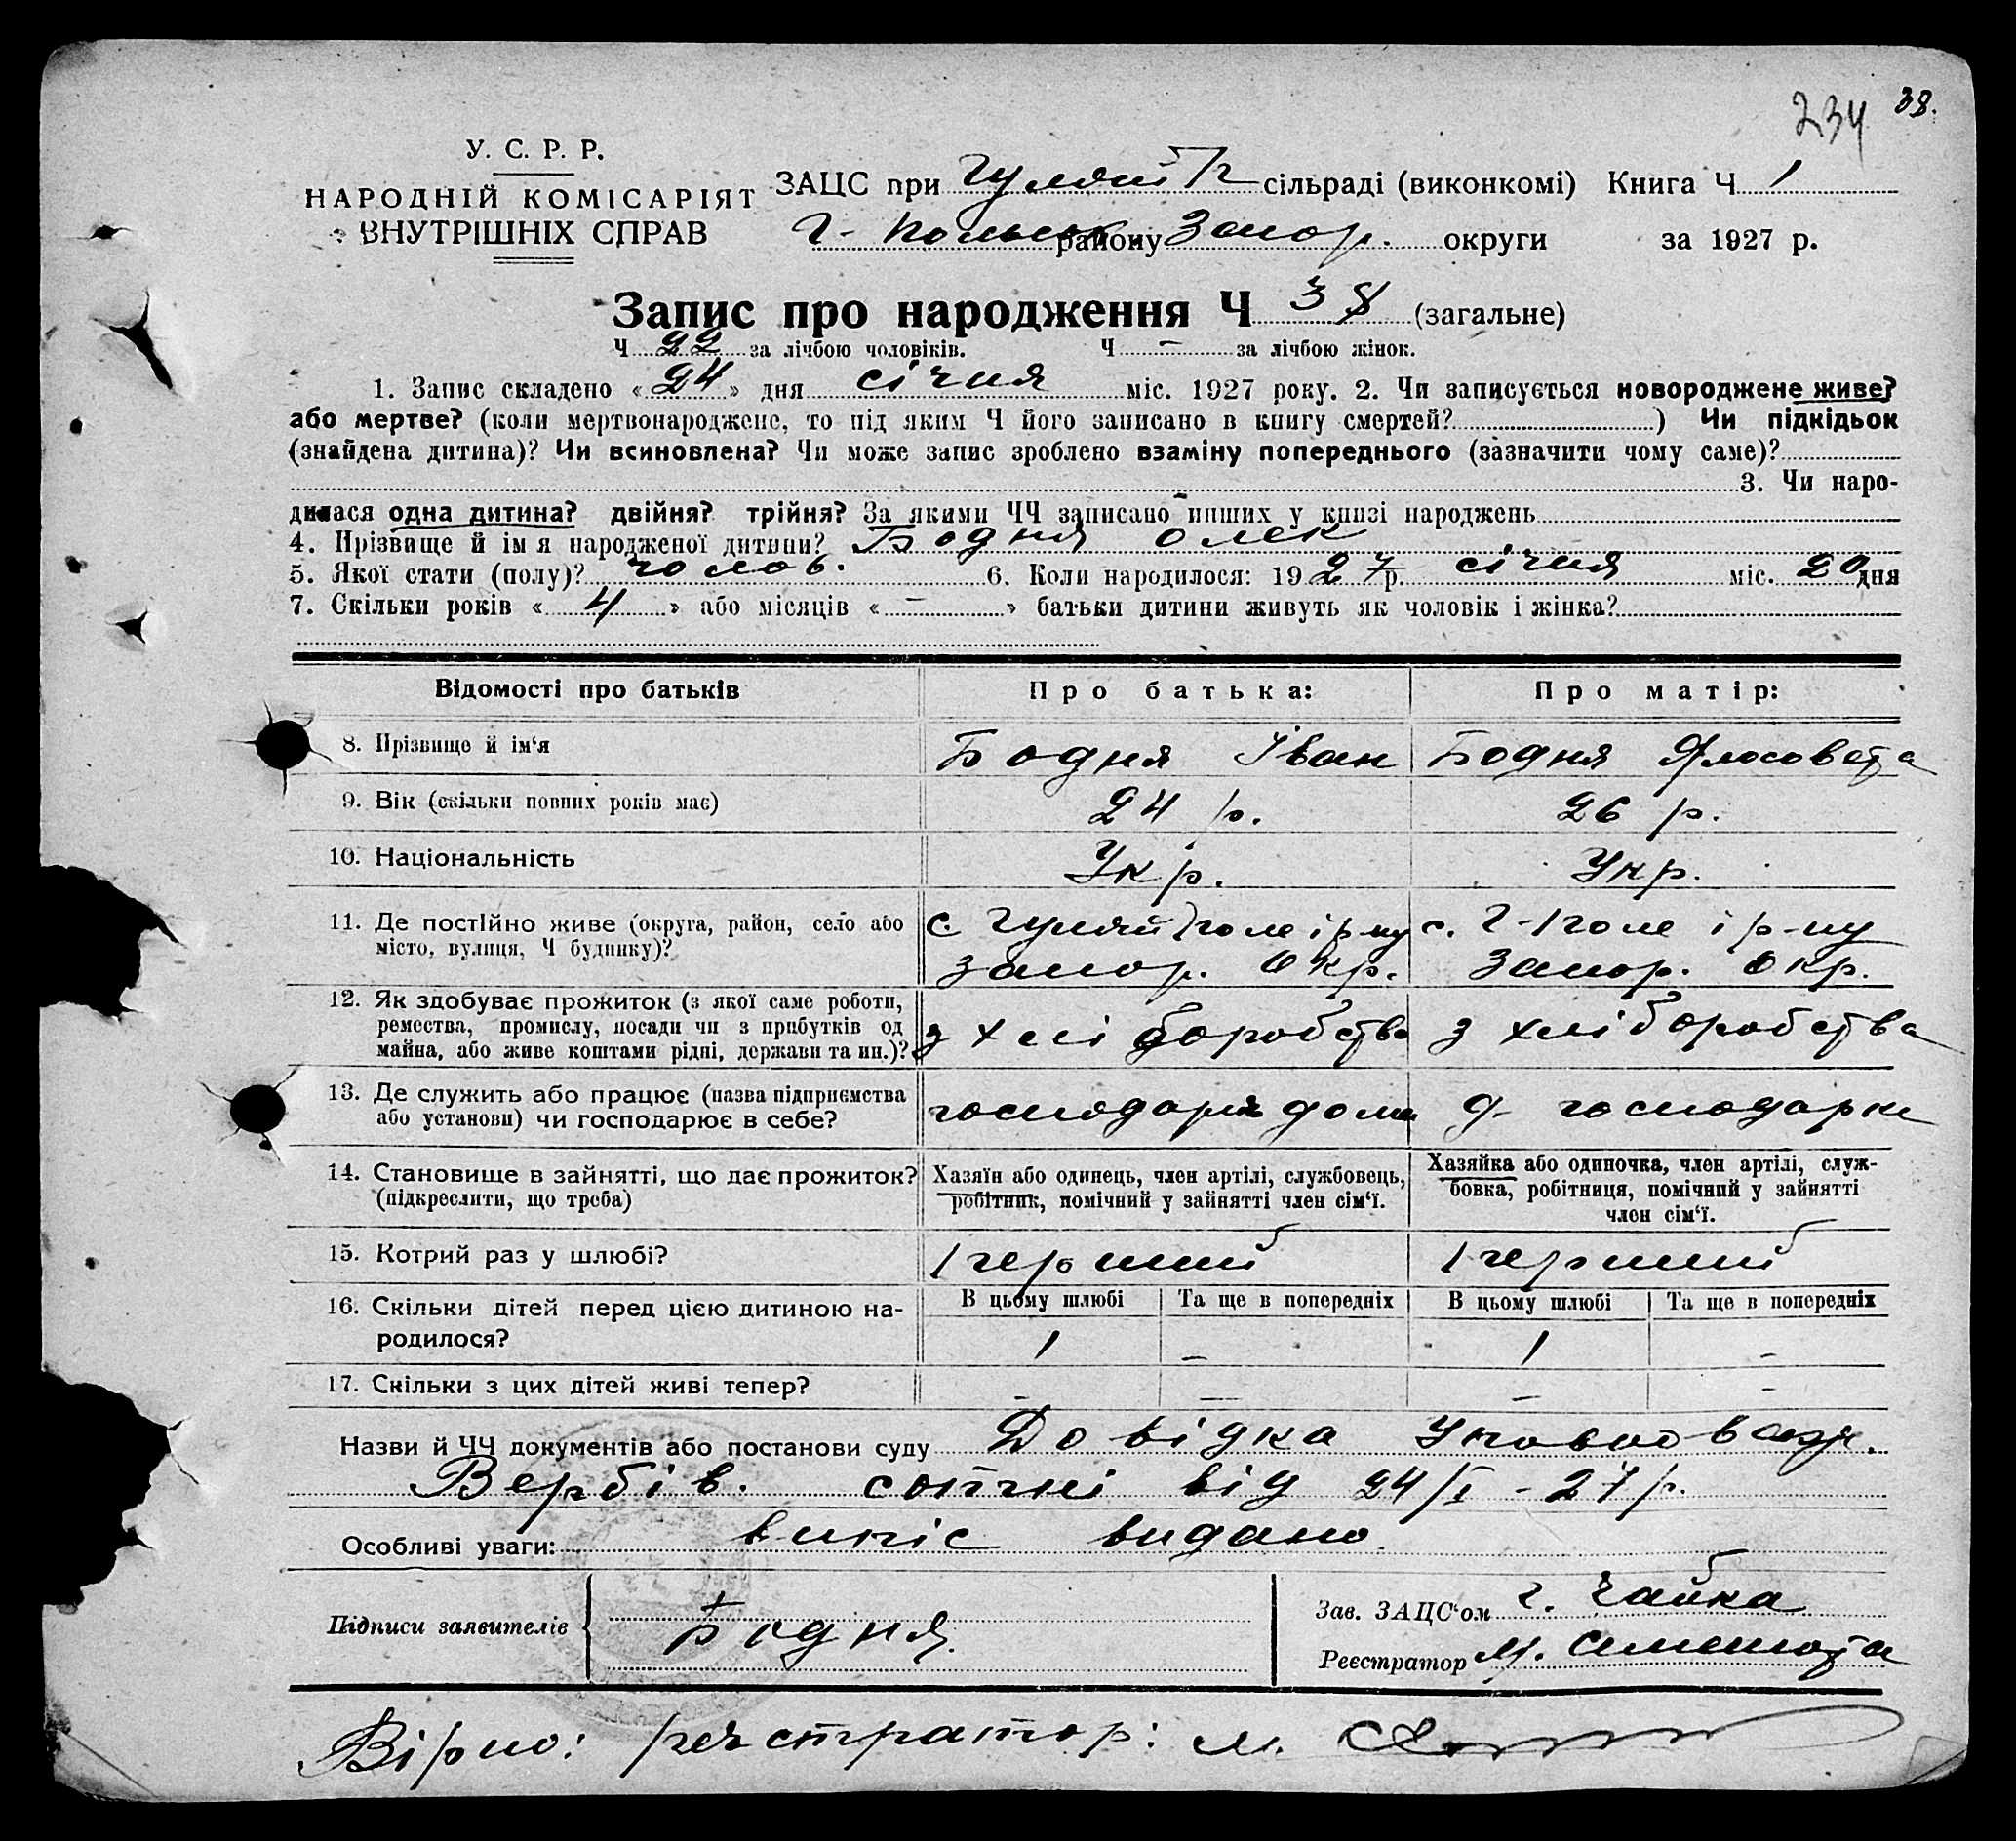 234 38.
У. С. Р. Р.
НАРОДНІЙ КОМІСАРІЯТ
ВНУТРІШНІХ СПРАВ
ЗАЦС при Гуляй П сільраді (виконкомі) Книга Ч 1
Г- Польськ. району Запор. округи за 1927 р.
Запис про народження Ч 38 (загальне)
Ч 22 за лічбою чоловіків. Ч - за лічбою жінок.
1. Запис складено «24» дня січня міс. 1927 року. 2. Чи записується новороджене живе?
або мертве? (коли мертвонароджене, то під яким Ч його записано в книгу смертей? ) Чи підкідьок
(знайдена дитина)? Чи всиновлена? Чи може запис зроблено взаміну попереднього (зазначити чому саме)?
3. Чи наро-
дилася одна дитина? двійня? трійня? За якими ЧЧ записано инших у книзі народжень -
4. Прізвище й ім я народженої дитини? Бодня Олек
5. Якої стати (полу)? чолов. 6. Коли народилося: 1927р. січня міс. 20 дня
7. Скільки років «4» або місяців «-» батьки дитини живуть як чоловік і жінка?
Відомості про батьків Про батька: Про матір:
8. Прізвище й ім‘я Бодня Іван Бодня Ялисовета
9. Вік (скільки повних років має) 24 р. 26 р.
10. Національність Укр. Укр.
11. Де постійно живе (округа, район, село або місто, вулиця, Ч будинку)? с. Гуляй Поле і р-ну с. Г-Поле і р-ну
Запор. Окр. Запор. Окр.
12. Як здобуває прожиток (з якої саме роботи,
ремества, промислу, посади чи з прибутків од
майна, або живе коштами рідні, держави та ин.)? з хліборобства з хліборобства
13. Де служить або працює (назва підприємства
або установи) чи господарює в себе? господаря дома д- господарки
14. Становище в зайнятті, що дає прожиток?
(підкреслити, що треба)
Хазяїн або одинець, член артілі, службовець,
робітник, помічний у зайнятті член сім‘ї.
Хазяйка або одиночка, член артілі, служ-
бовка, робітниця, помічний у зайнятті
член сім‘ї.
15. Котрий раз у шлюбі? Перший Перший
16. Скільки дітей перед цією дитиною на-
родилося?
В цьому шлюбі Та ще в попередніх В цьому шлюбі Та ще в попередніх
1 - 1 -
17. Скільки з цих дітей живі тепер? - - - -
Назви й ЧЧ документів або постанови суду Довідка
Вербів. сотні від 24/I - 27 р.
Особливі уваги: випіс видано
Підписи заявителів Бодня.
Зав. ЗАЦС‘ом Г. Чайка
Реєстратор М.
Вірно: реєстратор: М.